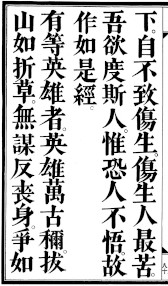 下。自不致傷生。傷生人最苦。
吾欲度斯人。惟恐人不悟。故
作如是經。
有等英雄者。英雄萬古稱。拔
山如折草。無謀反喪身。爭如